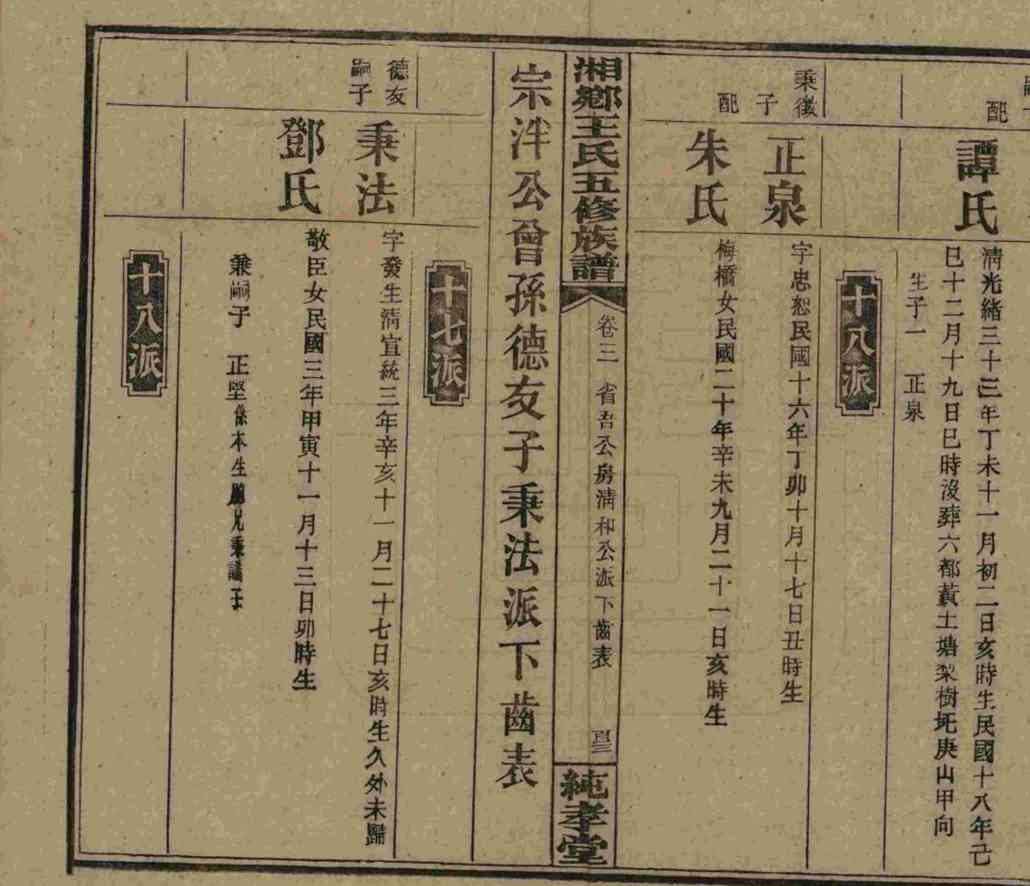 配
譚氏
清光緒三十三年丁未十一月初二日亥時生民國十八年己
巳十二月十九日巳時沒葬六都黃土塘梨樹坬庚山甲向
生子一 正泉
十八派
秉徵
子
正泉
字忠恕民國十六年丁卯十月十七日丑時生
配
朱氏
梅橋女民國二十年辛未九月二十一日亥時生
湘鄉王氏五修族譜
卷三 省吾公房清和公派下齒表
純孝堂
宗泮公曾孫德友子秉法派下齒表
十七派
德友
嗣子
秉法
字發生清宣統三年辛亥十一月二十七日亥時生久外未歸
鄧氏
敬臣女民國三年甲寅十一月十三日卯時生
兼嗣子 正堅係本生兄秉子
十八派